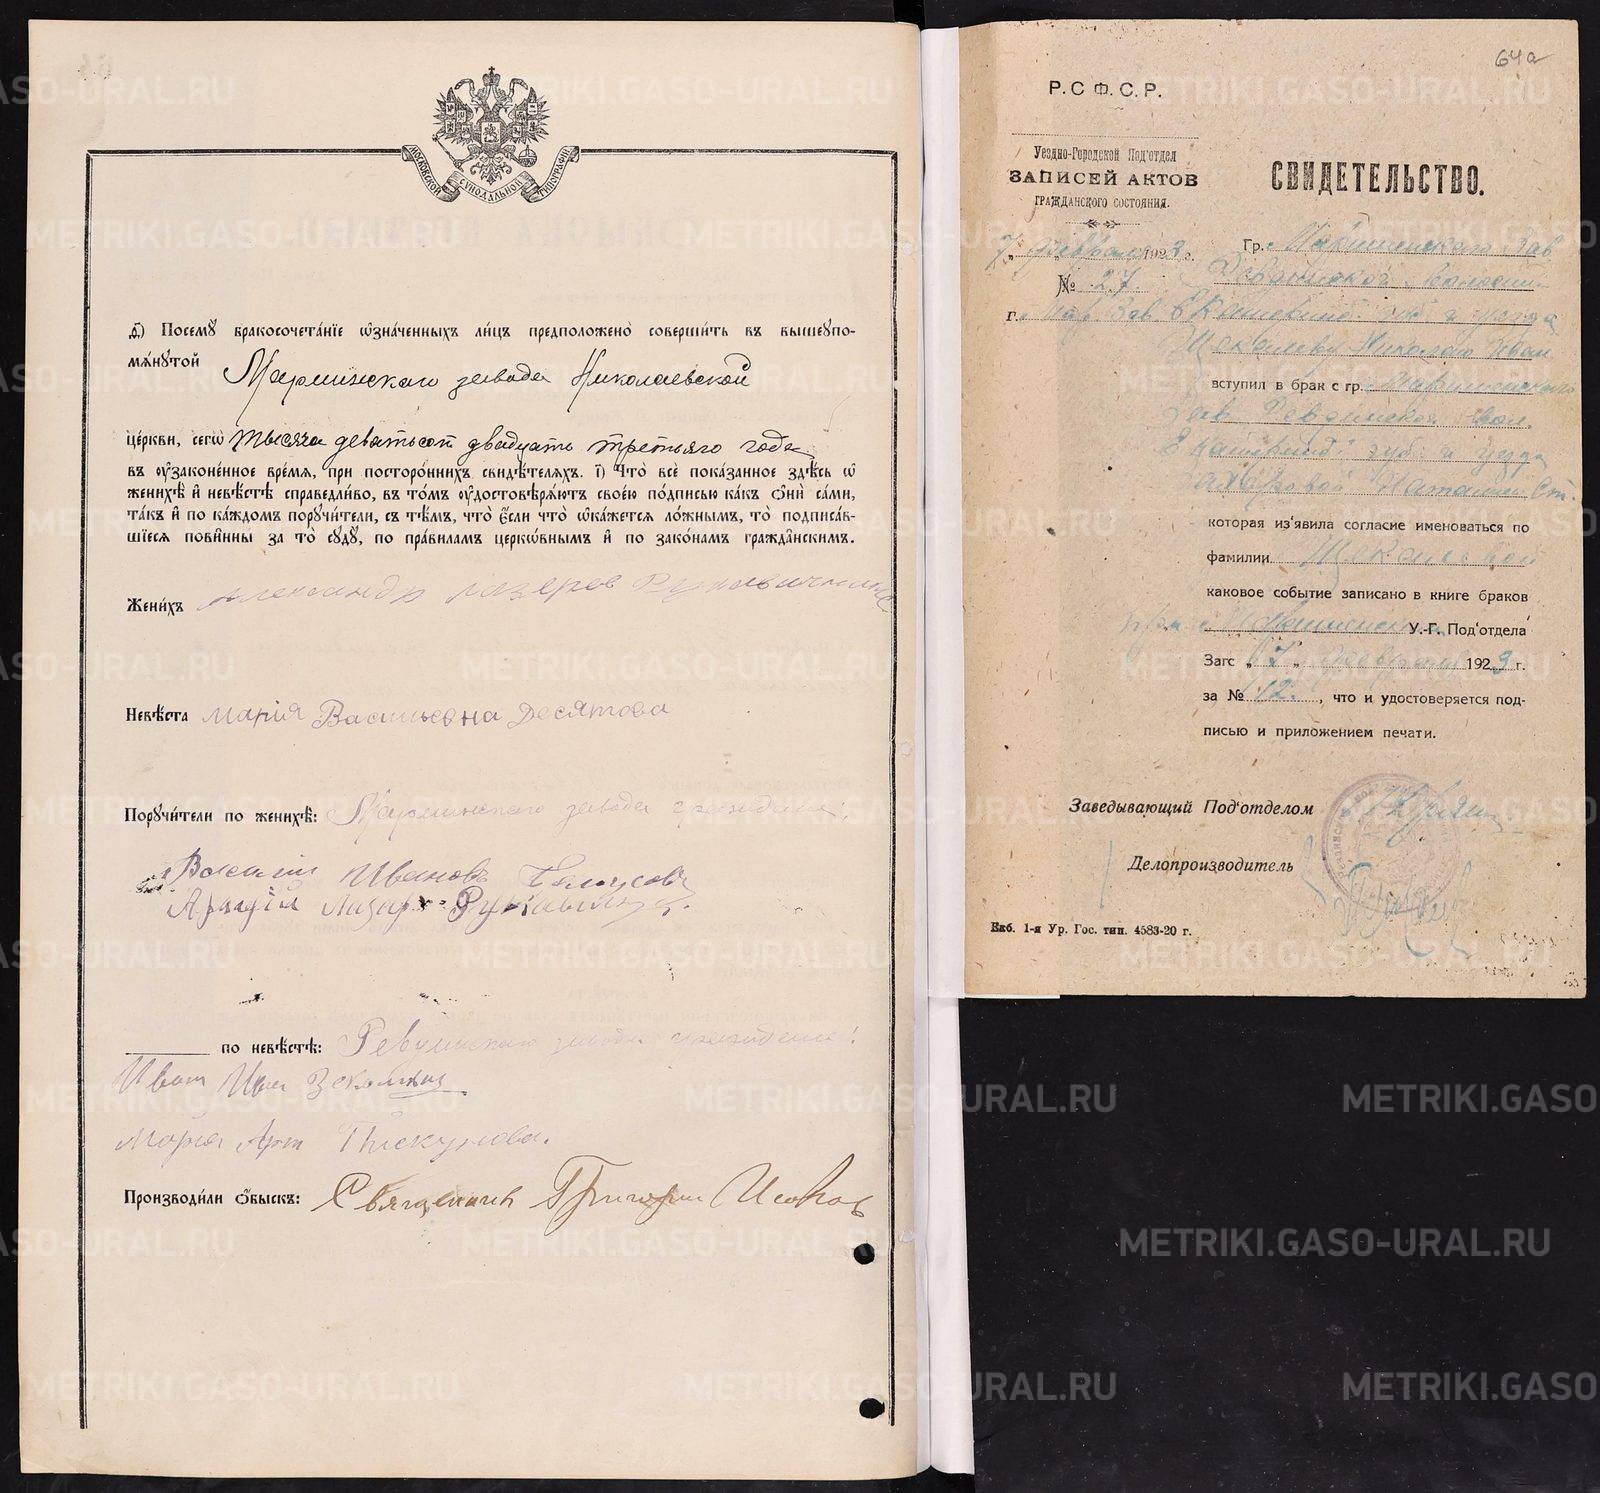 МОСКОВСКОЙ СѴНОДАЛЬНОЙ ТИПОГРАФІИ
Посемꙋ̀ бракосочета́нїе ѡ҆зна́ченныхъ ли́цъ предположено̀ соверши́ть въ вышеꙋпо-
мѧ́нꙋтой Мариинскаго завода Николаевской
це́ркви, сегѡ̀ тысяча девятьсот двадцать третьяго года
въ ᲂу҆зако́ненное вре́мя, при посторо́ннихъ свидѣ́теляхъ. і҃) Что̀ всѐ пока́занное здѣ́сь ѡ҆
женихѣ̀ и҆ невѣ́стѣ справедли́во, въ то́мъ ᲂу҆достовѣрѧ́ютъ свое́ю по́дписью ка́къ ѻ҆нѝ са́ми,
та́къ и҆ по ка́ждомъ порꙋчи́тели, съ тѣ́мъ, что̀ є҆́сли что̀ ѡ҆ка́жется ло́жнымъ, то̀ подписа́в-
шїеся пови́нны за то̀ сꙋдꙋ̀, по пра́виламъ церко́внымъ и҆ по зако́намъ гражда́нскимъ.
Жени́хъ Александр Лазерев Рукавичников
Невѣ́ста Мария Васильевна Десятова
Порꙋчи́тели по женихѣ̀: Мариинскаго завода граждане:
Василий Иванов Белоусов
Аркадий Лазар Рукавишн
по невѣ́стѣ: Ревдинскаго завода граждане:
Иван Иван
Мария Арт Пискунова.
Производи́ли ѻ҆́быскъ: Священник Григорий
64а
Р.С.Ф.С.Р.
Уездно-Городской Под‘отдел
ЗАПИСЕЙ АКТОВ
ГРАЖДАНСКОГО СОСТОЯНИЯ.
7 февраля 1923 г.
№ 27.
СВИДЕТЕЛЬСТВО.
Гр. Мариинского Зав
Ревдинской волости
г. Мар. Зав. Екатеринб. губ и уезда
Щекалеву Николаю Иван.
вступил в брак с гр. Мариинского
Зав. Ревдинской вол.
Екатеринб. губ и уезда
Наталии Ст.
которая из‘явила согласие именоваться по
фамилии Щекалевой
каковое событие записано в книге браков
при Мариинском У.-Г. Под‘отдела
Загс „ 7 „ февраля 1923 г.
за № 12. , что и удостоверяется под-
писью и приложением печати.
Заведывающий Под‘отделом
Делопроизводитель
Екб. 1-я Ур. Гос. тип. 4583-20 г.
METRIKI.GASO-URAL.RU